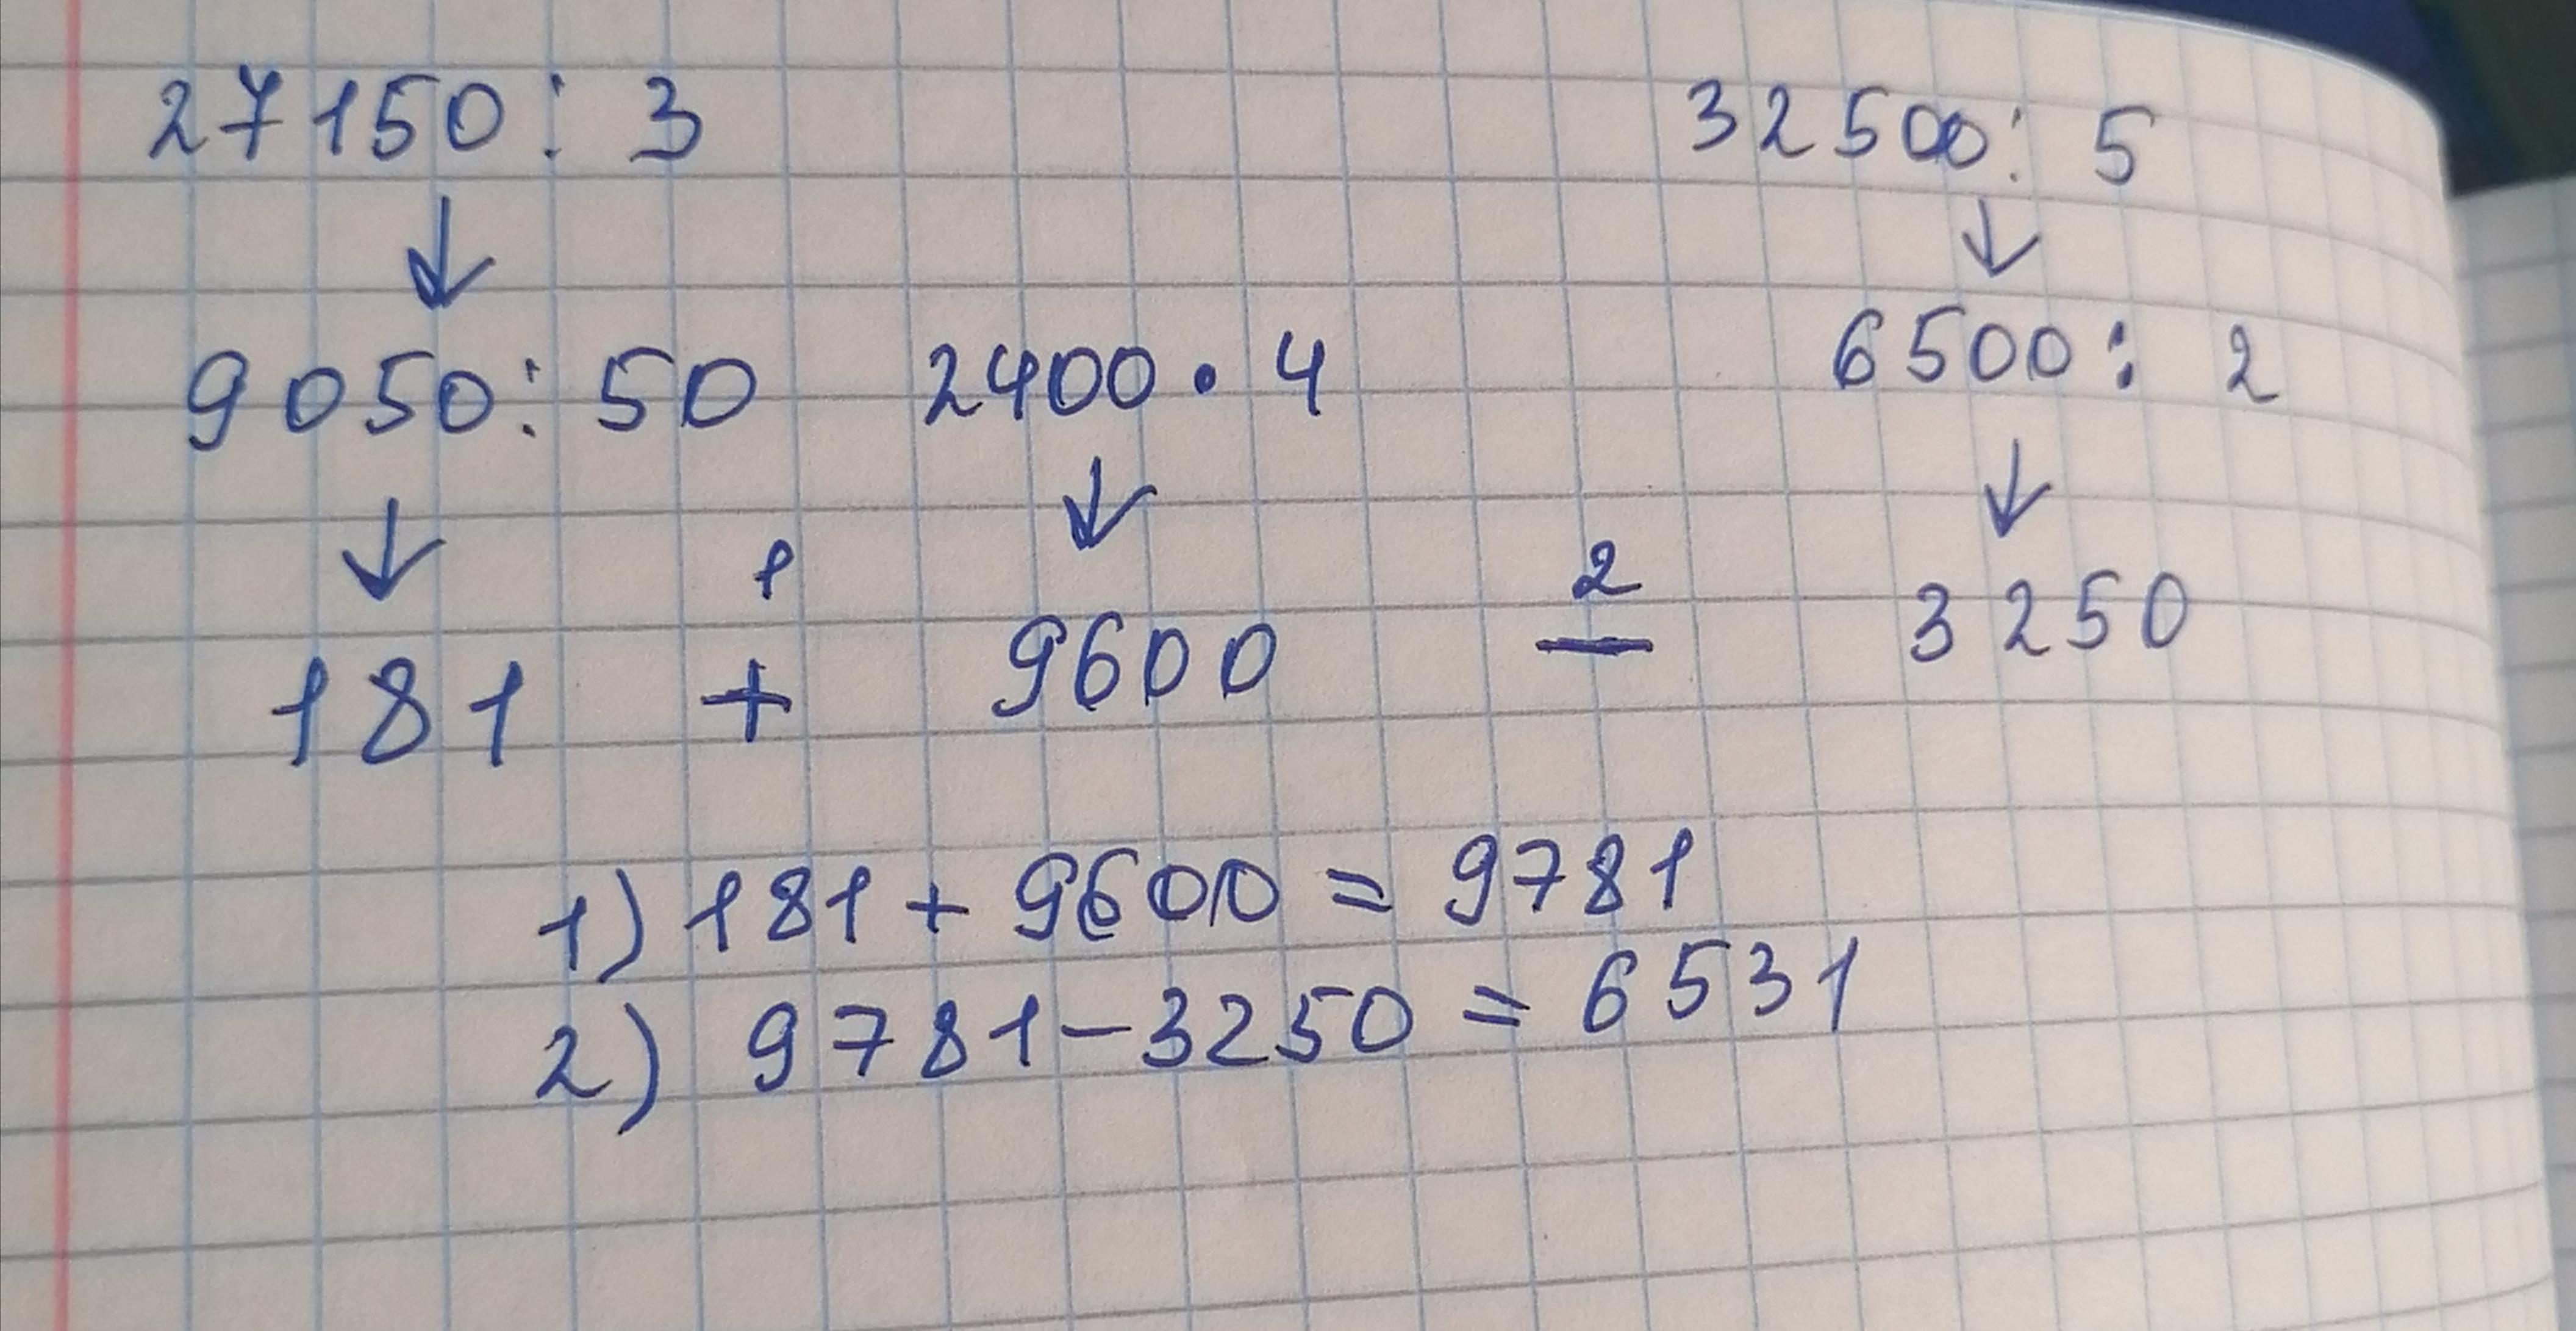 27150 : 3 32500 : 5
↓ ↓
9050 : 50 2400 · 4 6500 : 2
↓ ↓ ↓
1 2
181 + 9600 − 3250
1) 181 + 9600 = 9781
2) 9781 − 3250 = 6531